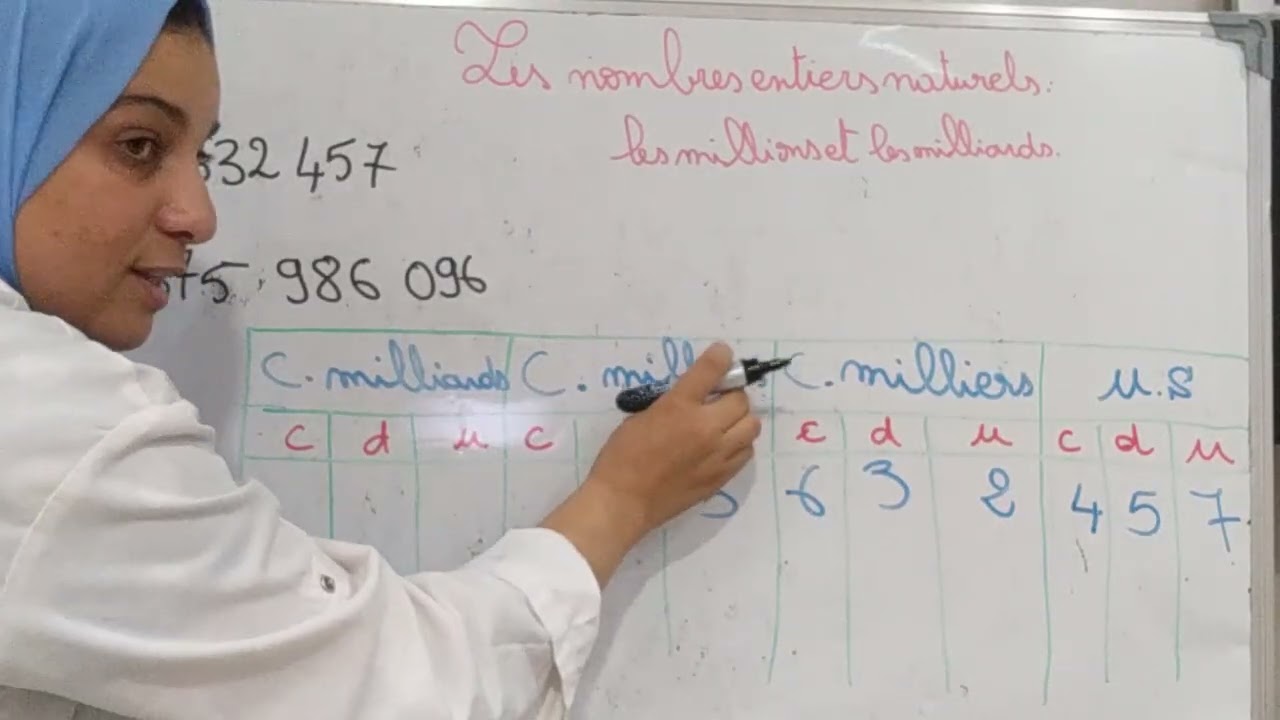 Les nombres entiers naturels.
les millions et les milliards.
632 457
75 986 096
C. milliards C. C. milliers U.S
C d u C c d u c d u
6 3 2 4 5 7